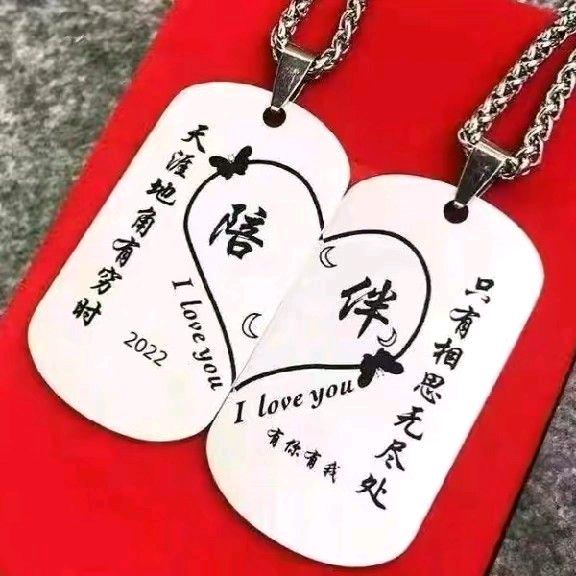 天涯地角有穷时
陪
I love you
2022
伴
I love you
有你有我
只有相思无尽处